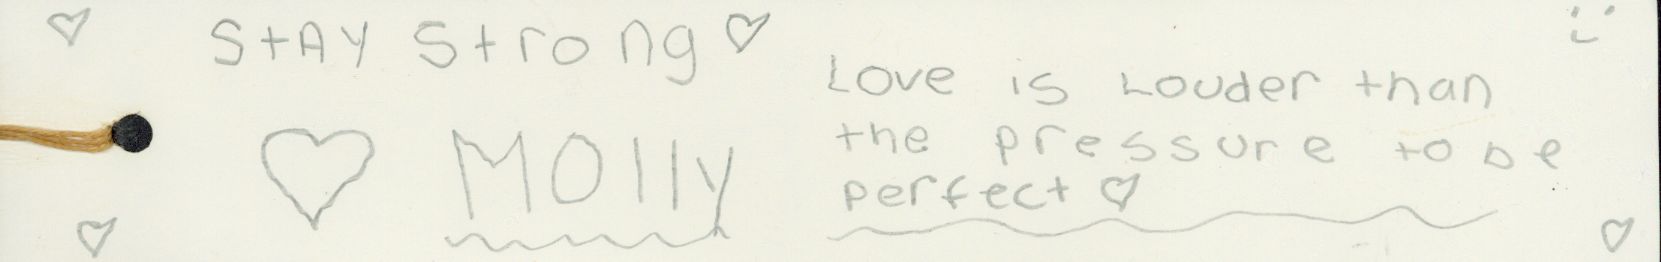 StAy Strong ♡
♡ Molly
Love is Louder than
the pressure to be
perfect ♡